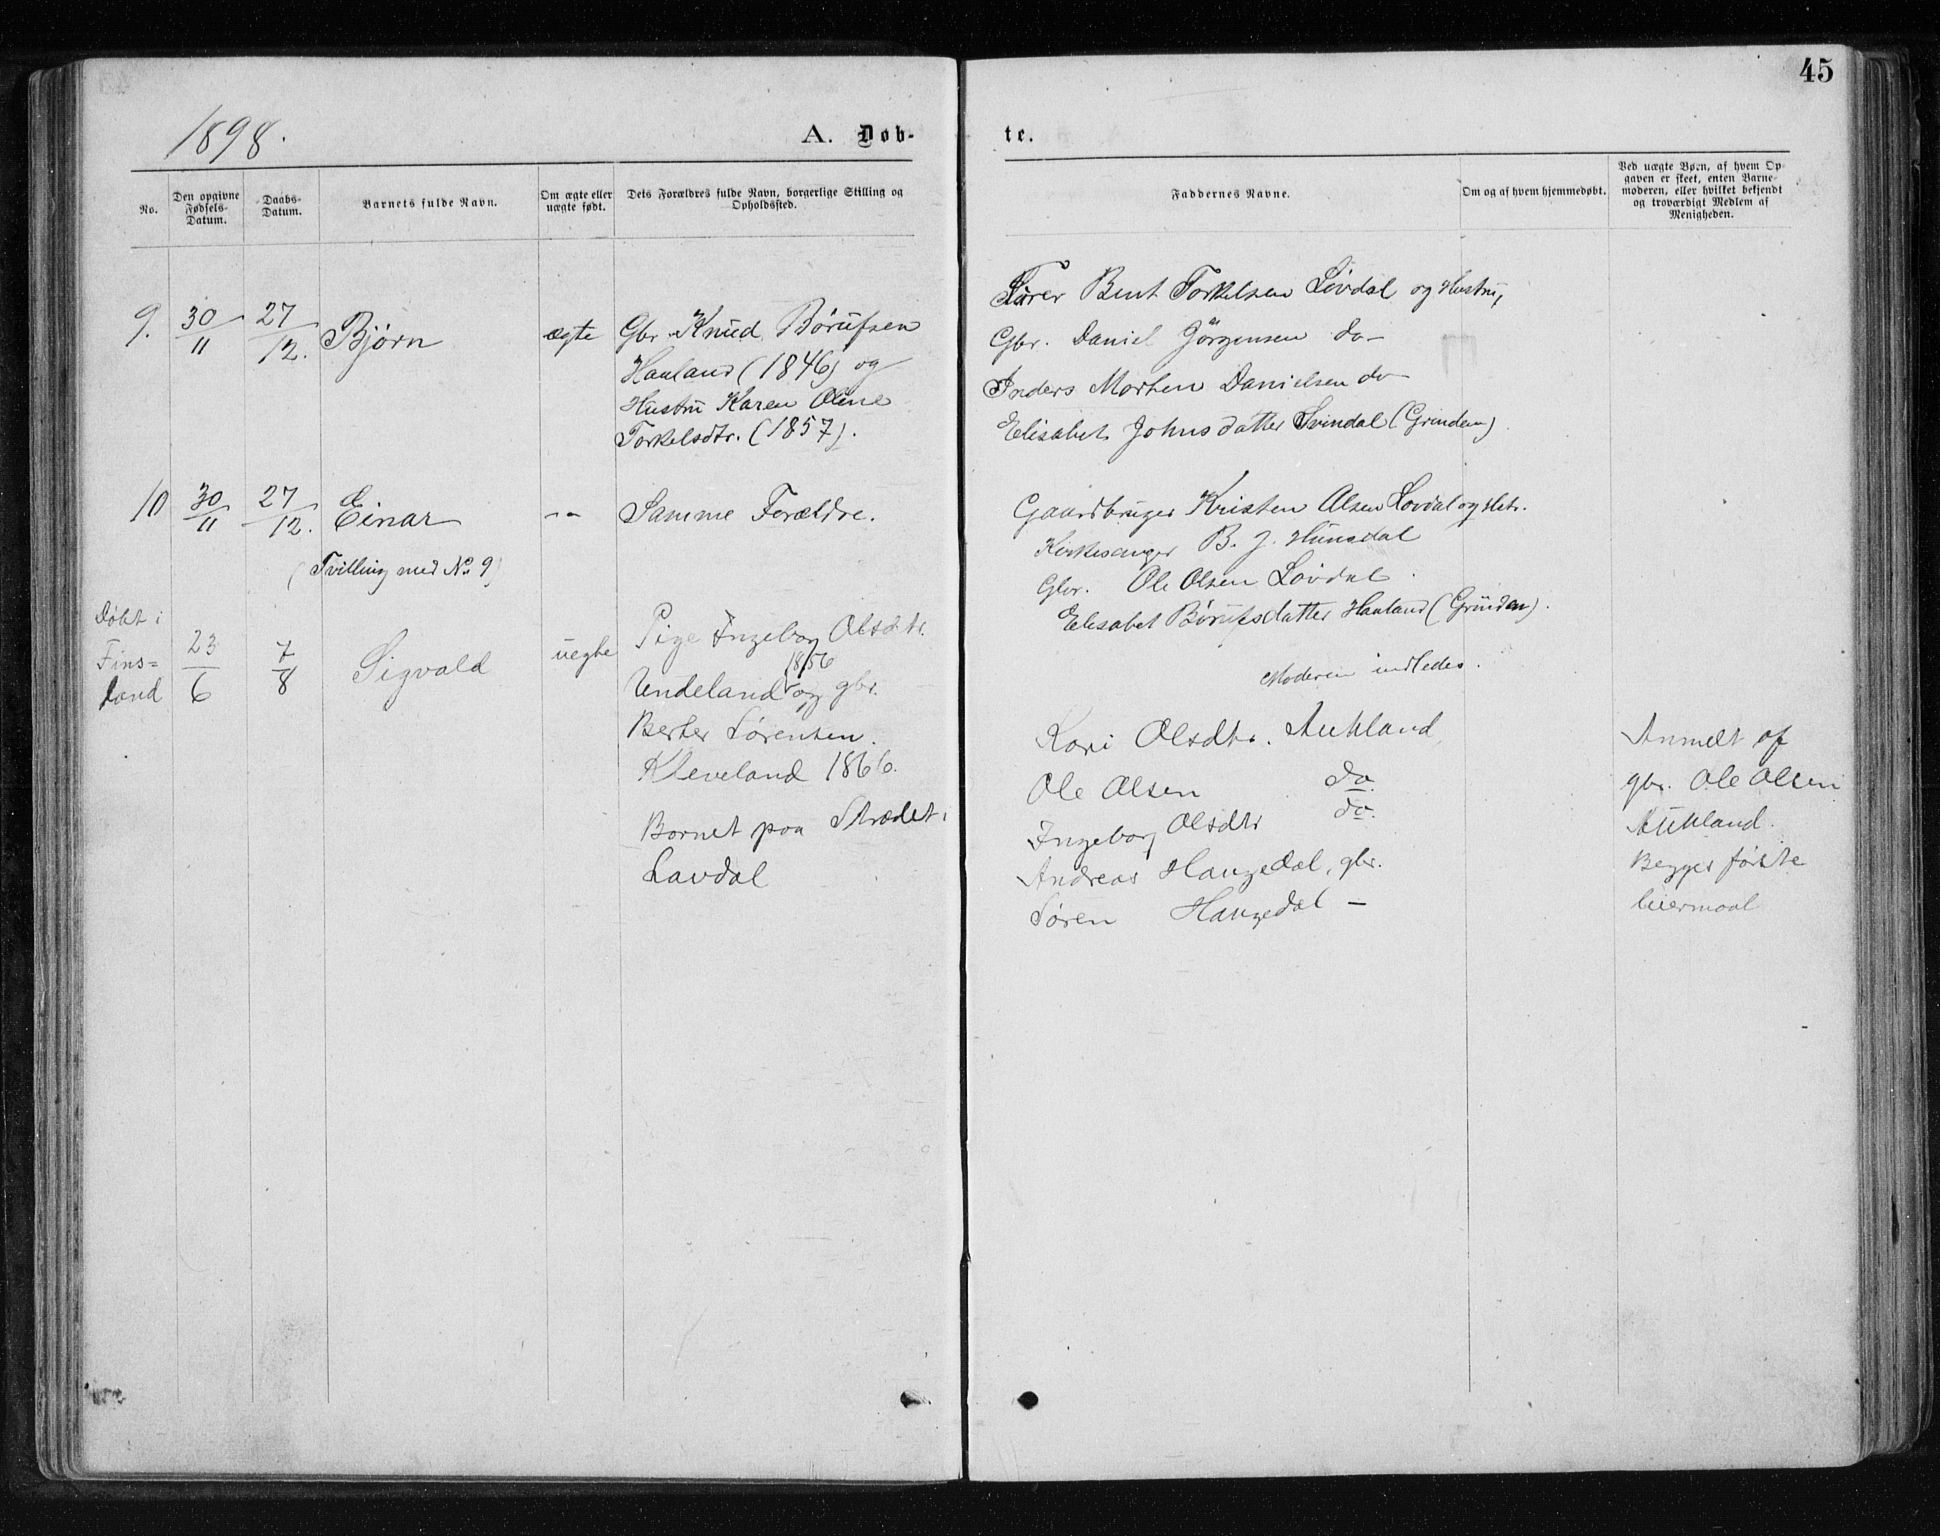 45
1898.
A. Døb-
te.
No.
Den opgivne Fødsels-Datum.
Daabs-Datum.
Barnets fulde Navn.
Om ægte eller uægte født.
Dets Forældres fulde Navn, borgerlige Stilling og Opholdssted.
Faddernes Navne.
Om og af hvem hjemmedøbt.
Ved uægte Børn, af hvem Opgaven er skeet, enten Barnemoderen, eller hvilket bekjendt og troværdigt Medlem af Menigheden.
9. 30/11 27/12. Bjørn ægte Gbr. Knud Børufsen
Hauland (1846) og
Hustru Karen Oline
Torkelsdtr. (1857).
Bent Torkelsen Løvdal og Hustru,
Gbr. Daniel Jörgensen do-
Morten Danielsen do-
Elisabet Johnsdatter Svindal (Grindem)
10 30/11 27/12. Einar -„- Samme Forældre.
(Tvilling med No 9)
Gaardbruger Kristen Olsen Lovdal og Hstr.
Kirkesanger B. J. Hunsdal
Gbr. Ole Olsen Lövdal.
Elisabet Børufsdatter Hauland (Grindem).
Døbt i
Fins=
land
23/6 7/8 Sigvald uegte
Pige Ingeborg Olsdtr.
1856
Undeland og gbr.
Berter Sørensen.
Kleveland 1866.
Barnet paa Strædet i
Lavdal
Moderen indledes.
Kari Olsdtr. Aukland,
Ole Olsen do.
Ingeborg Olsdtr do.
Andreas Haugedal, gbr.
Søren Haugedal -
Anmelt af
gbr. Ole Olsen
Aukland.
Begges første
leiermaal